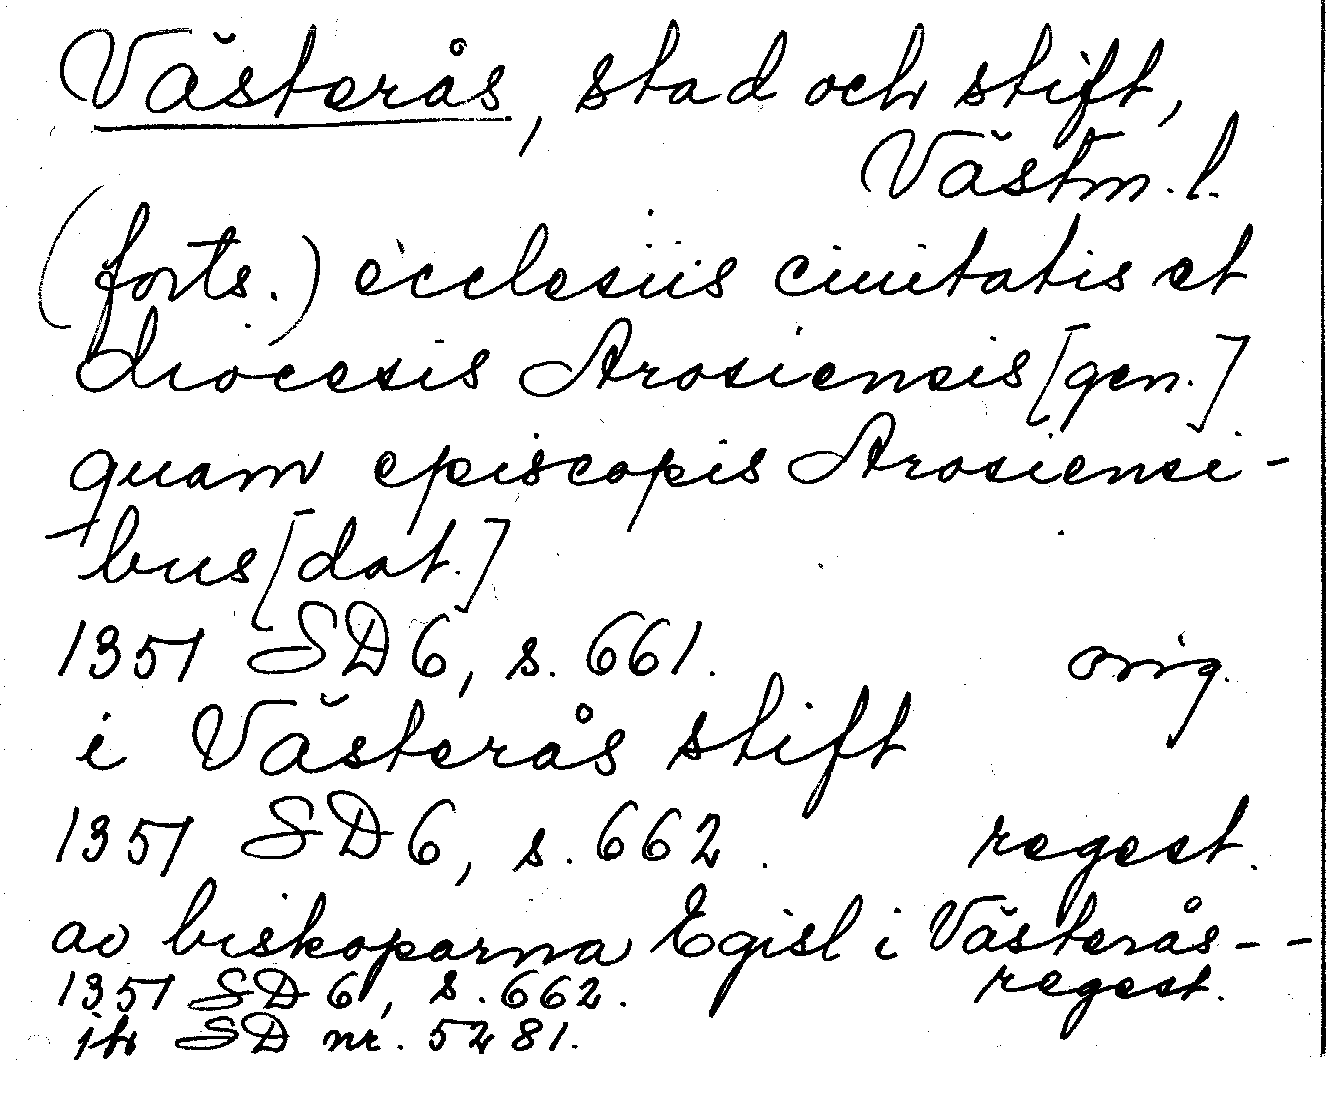 Västerås, stad och stift,
Västm. l.
(forts.) ecclesiis ciuitatis et
diocesis Arosiensis [gen.]
quam episcopis Arosiensi-
-bus [dat.]
1357 SD 6, s. 661. orig.
i Västerås stift
1357 SD 6, s. 662. regest.
av biskoparna Egisl i Västerås - -
1357 SD 6, s. 662. regest.
jfr SD nr. 5281.